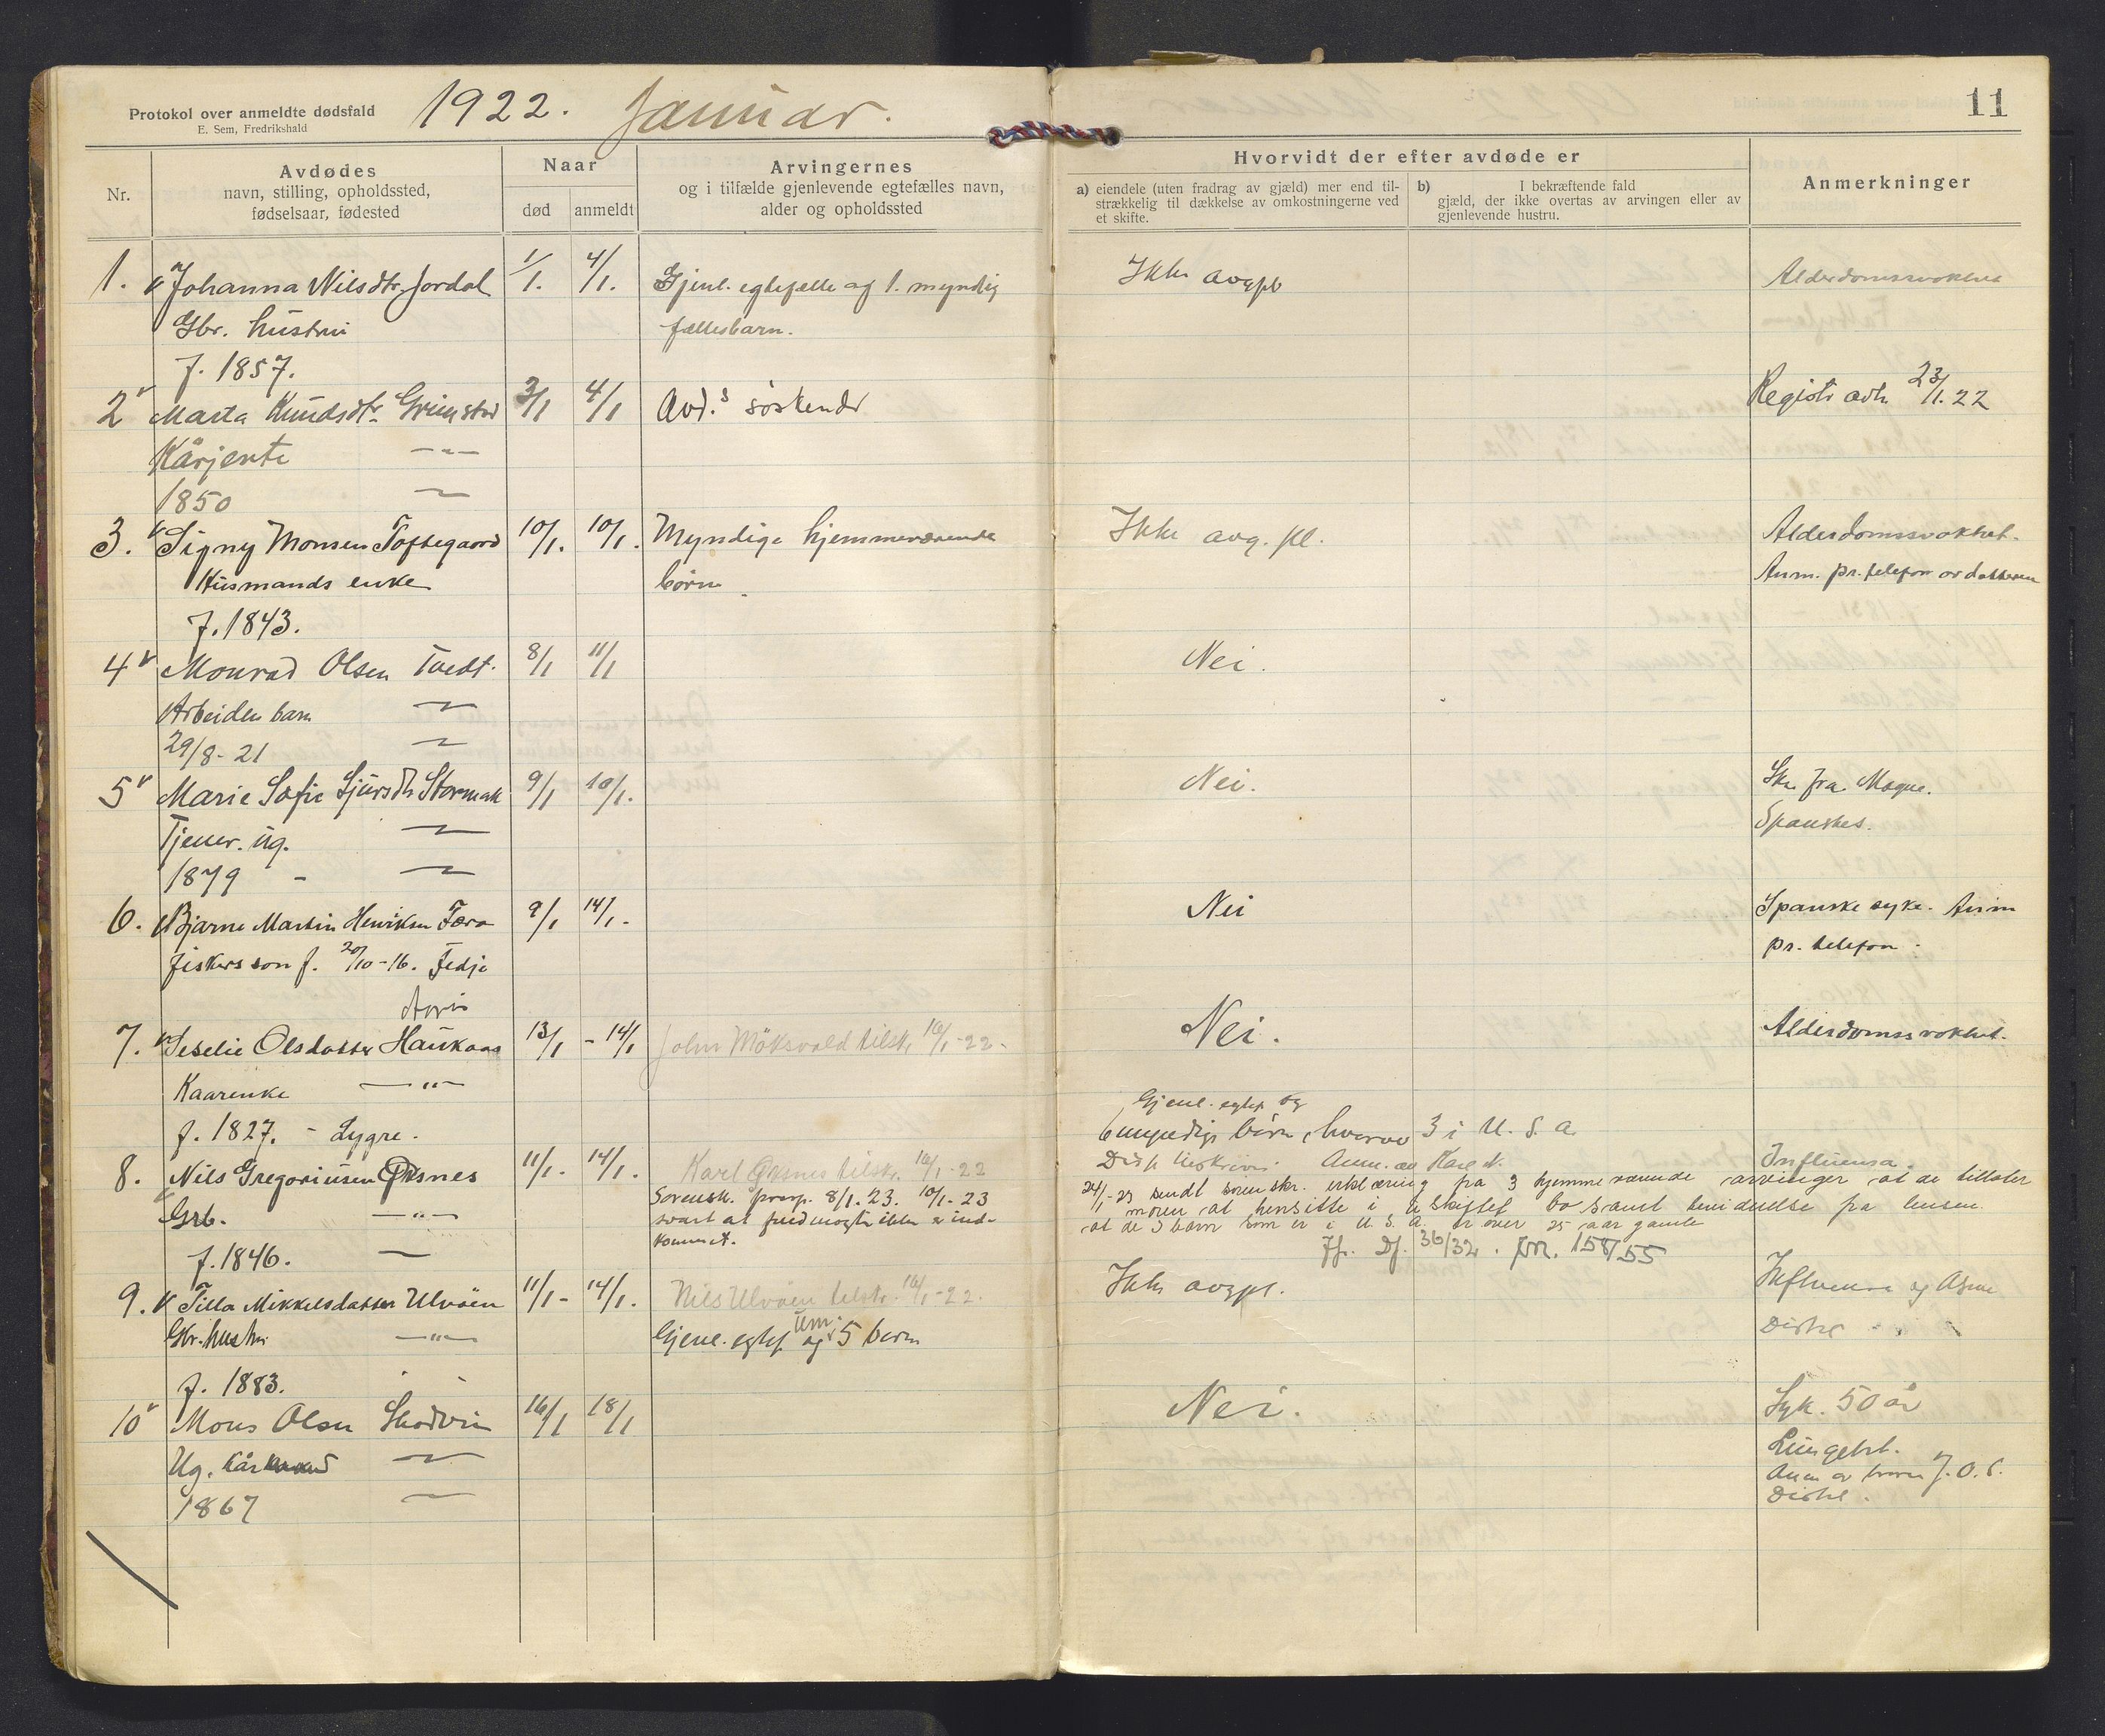 Protokol over anmeldte dødsfald
E. Sem, Fredrikshald
1922. Januar.
11
Nr.
Avdødes
navn, stilling, opholdssted,
fødselsaar, fødested
Naar
død
anmeldt
Arvingernes
og i tilfælde gjenlevende egtefælles navn,
alder og opholdssted
Hvorvidt der efter avdøde er
a) eiendele (uten fradrag av gjæld) mer end til-
strækkelig til dækkelse av omkostningerne ved
et skifte.
b) I bekræftende fald
gjæld, der ikke overtas av arvingen eller av
gjenlevende hustru.
Anmerkninger
1. Johanna Nilsdtr. Jordal 1/1. 4/1. Gjenl. egtefelle og 1. myndig Ikke avgpl Alderdomssvakhet
Gbr. hustru fællesbarn.
f. 1857.
2 Marta Knudsdtr. Grimstad 3/1 4/1 Avd.s søskende Registr avh. 23/1.22
Kårjente -"-
1850
3. Signy Monsen Toftegaard 10/1. 10/1. Myndige hjemmeværende Ikke avg.pl. Alderdomssvakhet.
Husmands enke børn Anm. pr. telefon av datteren
f. 1843.
4 Monrad Olsen Tvedt. 8/1 11/1 Nei.
Arbeider barn
29/8-21
5 Marie Sofie Sjursdtr Stormark 9/1 10/1. Nei. Skr. fra Mogne.
Tjener. ug. Spanskes.
1879 -
6. Bjarne Martin Henriksen Færø 9/1 14/1. Nei Spanske syke. Anm
fiskers søn f. 20/10-16. Fedje pr. telefon.
7. Seselie Olsdatter Haukaas 13/1 - 14/1 John Möksvold tilsk. 16/1-22. Nei. Alderdomssvakhet.
Kaarenke -"-
f. 1827. - Lygre.
Gjenl. egtef og
6 myndige børn, hvorav 3 i U.S.A.
8. Nils Gregoriusen Øksnes 11/1. 14/1. Karl Øksnes tilskr. 16/1-22 Anm. av Karl N. Influensa.
Grb. -"- Sorensk. foresp. 8/1.23. 10/1-23
svart at fuldmagt ikke er ind-
kommet.
f. 1846.
24/1-23 sendt sorenskr. erklæring fra 3 hjemmeværende arvinger at de tillater
moren at hensitte i uskiftet bo samt bevidnelse fra lensm.
at de 3 barn som er i U.S.A. er over 25 aar gamle
Jfr. Df. 36/32. 158/55
9. Tilla Mikkelsdatter Ulvöen 11/1- 14/1. Nils Ulvöen tilskr. 16/1-22. Ikke avgpl. Influensa og
Gbr. hustru -"- Gjenl. egtef og um. 5 born
f. 1883.
10 Mons Olsen Skodvin 16/1 18/1 Nei. Syk. 50 år
Ug. kår Lungebet.
1867 Anm av broren J.O.S.